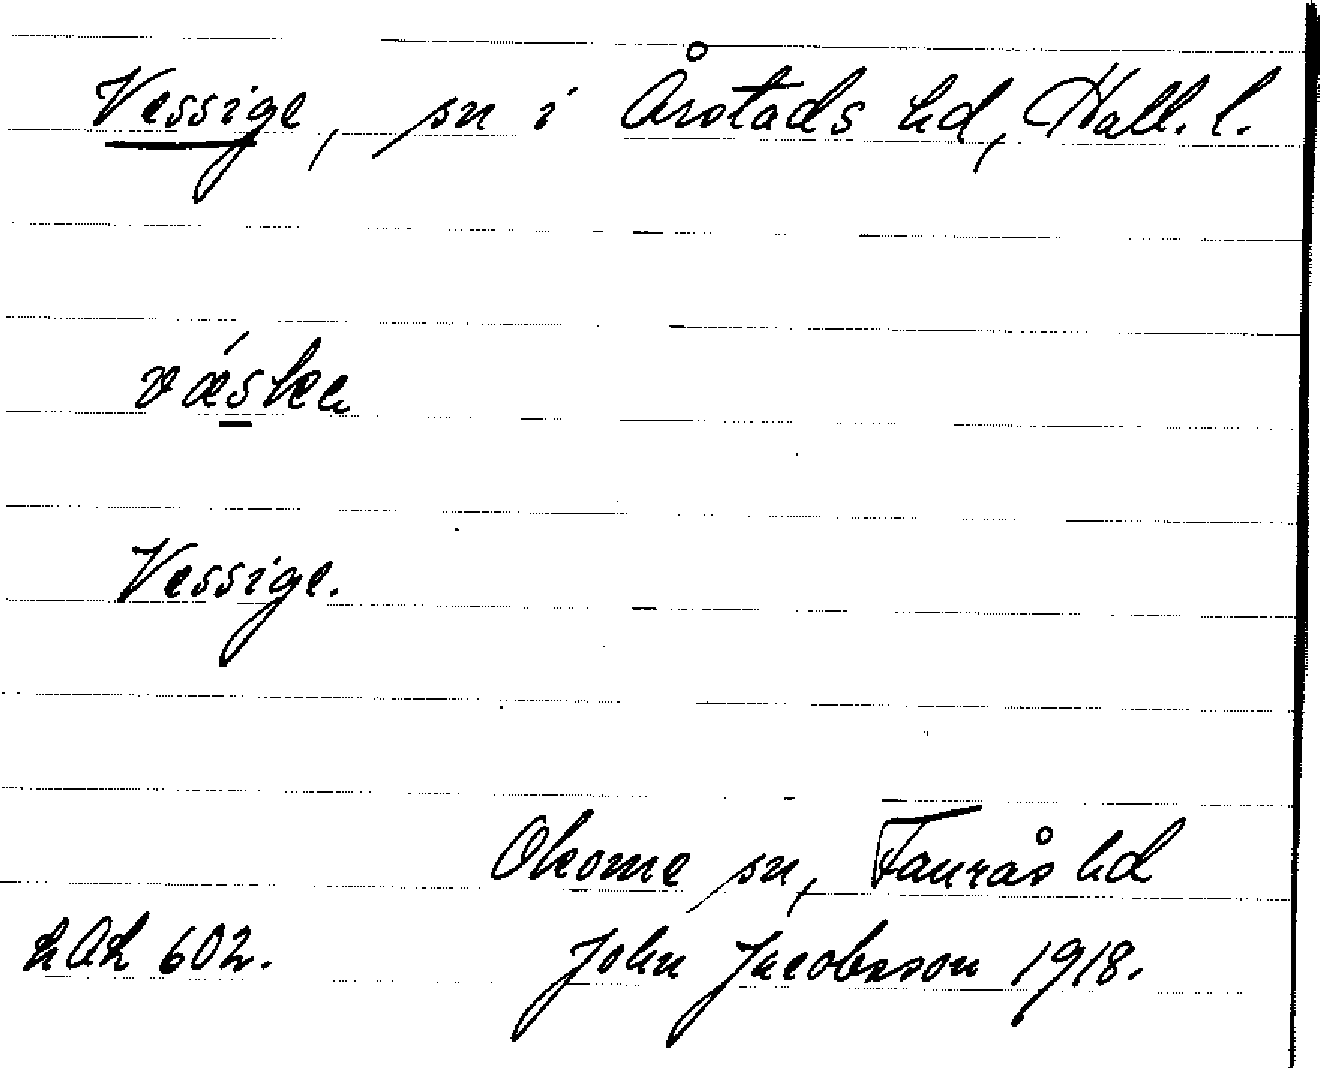 Vessige, sn i Årstads hd, Hall. l.
Vessige.
Okome sn, Faurås hd
hah 602. John Jacobsson 1918.